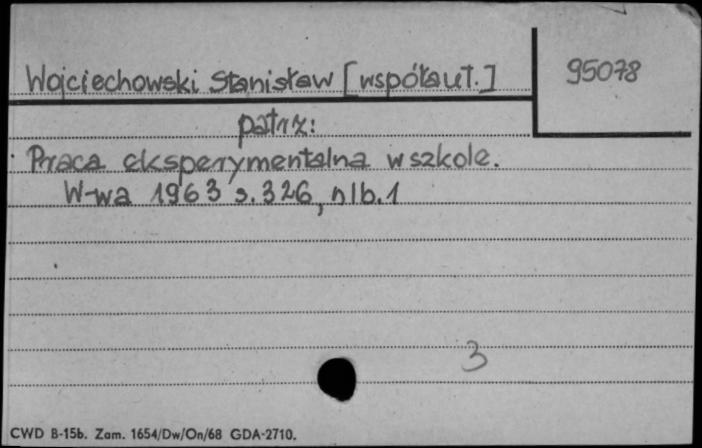 Wojciechowski Stanisław [współaut.]
95078
patrz:
Praca eksperymentalna w szkole.
W-wa 1963 s. 326, nlb. 1
3
CWD B-15b. Zam. 1654/Dw/On/68 GDA-2710.